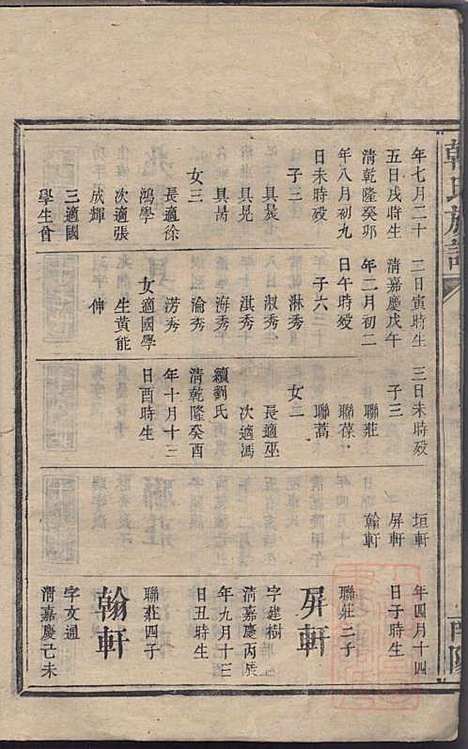 韓氏族譜
南陽
年七月二十
五日戌時生
清乾隆癸卯
年八月初九
日未時歿
子三
具晟
具晃
具昺
女三
長適徐
鴻學
次適張
成輝
三適國
學生曾
二日寅時生
清嘉慶戊午
年二月初二
日午時歿
子六
淋秀
淑秀
淇秀
海秀
淪秀
澇秀
女適國學
生黄能
伸
三日未時歿
子三
聯莊
聯葆
聯蒿
女二
長適巫
次適馮
續劉氏
清乾隆癸酉
年十月十三
日酉時生
垣軒
屏軒
翰軒
年四月十四
日子時生
聯莊二子
屏軒
字建樹
清嘉慶丙辰
年九月十三
日丑時生
聯莊四子
翰軒
字文通
清嘉慶己未